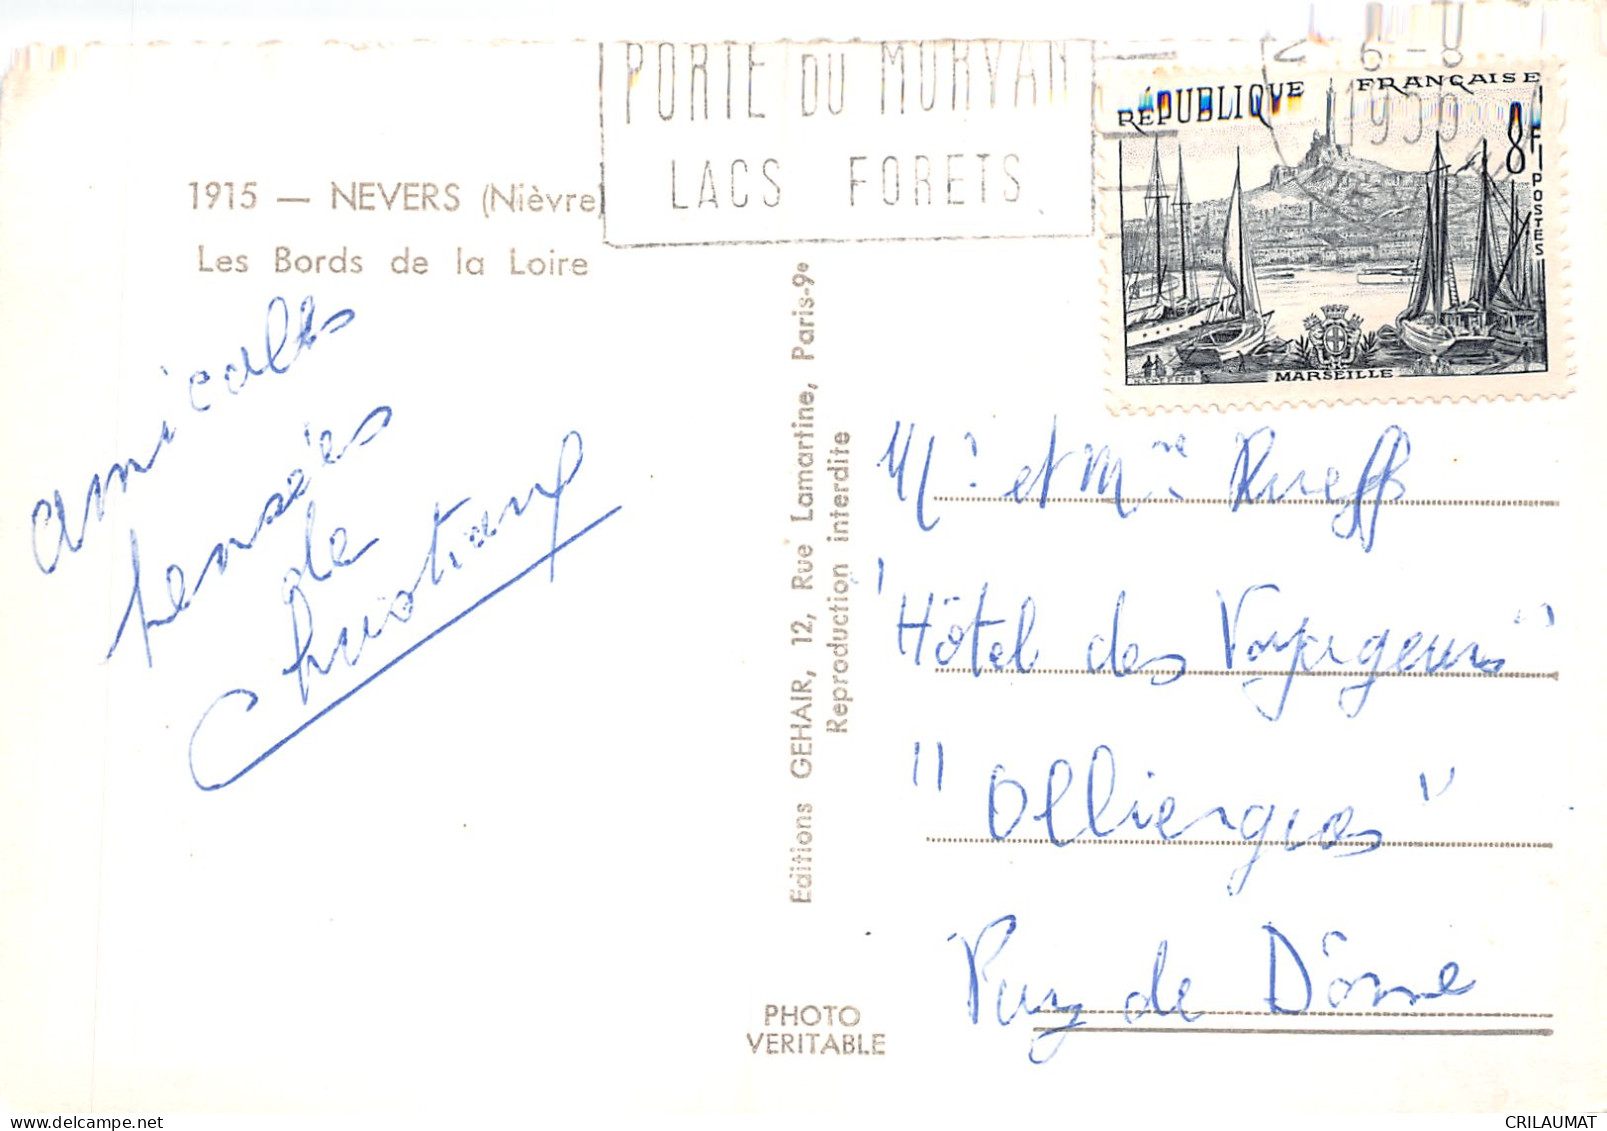 PORTE DU MORVAN
LACS FORETS
6-8
RÉPUBLIQUE FRANÇAISE
8F
POSTES
MARSEILLE
1915 — NEVERS (Nièvre)
Les Bords de la Loire
amicales
pensées
de
Christiane
Editions GEHAIR, 12, Rue Lamartine, Paris-9e
Reproduction interdite
PHOTO
VERITABLE
Mr et Mme Rueff
"Hôtel des Voyageurs"
"Olliergues"
Puy de Dôme
CRILAUMAT